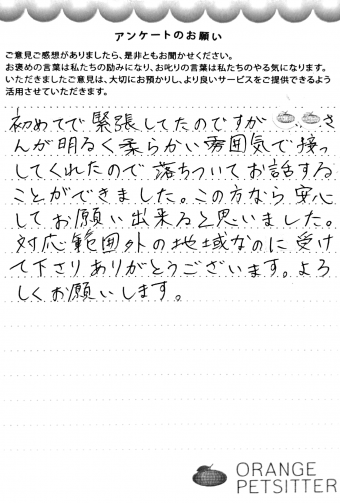 アンケートのお願い
ご意見ご感想がありましたら、是非ともお聞かせください。
お褒めの言葉は私たちの励みになり、お叱りの言葉は私たちのやる気になります。
いただきましたご意見は、大切にお預かりし、より良いサービスをご提供できるよう
活用させていただきます。
初めてで緊張してたのですが さ
んが明るく柔らかい雰囲気で接っ
してくれたので落ちついてお話する
ことができました。この方なら安心
してお願い出来ると思いました。
対応範囲外の地域なのに受け
て下さりありがとうございます。よろ
しくお願いします。
ORANGE
PETSITTER